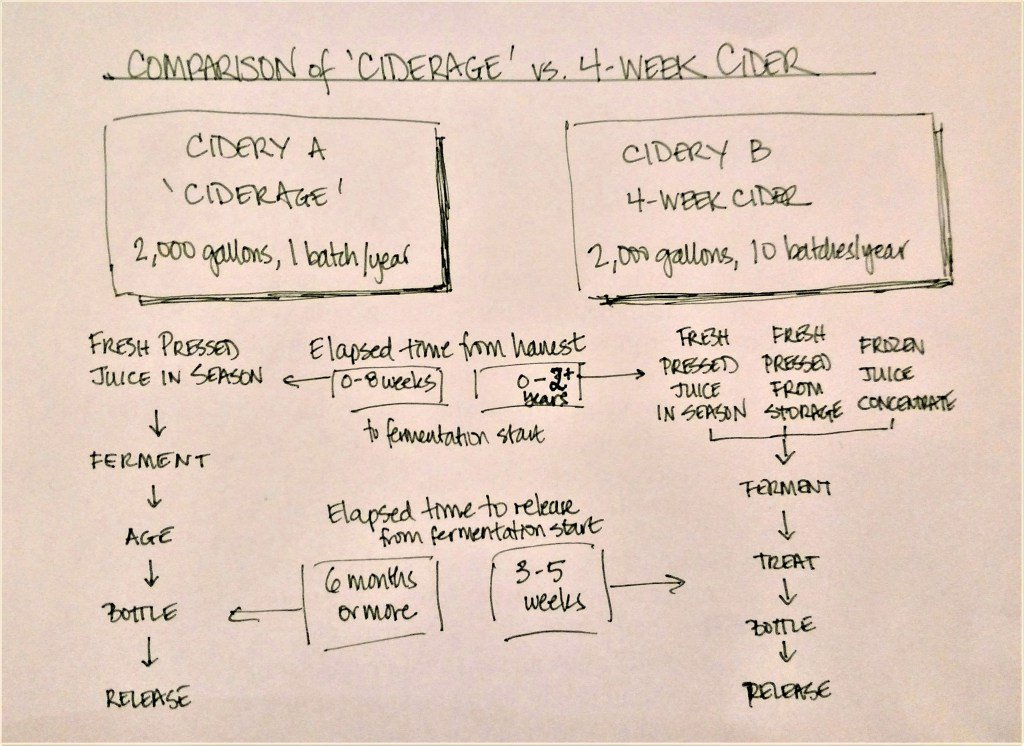 COMPARISON of 'CIDERAGE' vs. 4-WEEK CIDER
CIDERY A
'CIDERAGE'
2,000 gallons, 1 batch/year
CIDERY B
4-WEEK CIDER
2,000 gallons, 10 batches/year
FRESH PRESSED
JUICE IN SEASON
FERMENT
AGE
BOTTLE
RELEASE
Elapsed time from harvest
0-8 weeks
0-2+
years
to fermentation start
Elapsed time to release
from fermentation start
6 months
or more
3-5
weeks
FRESH
PRESSED
JUICE
IN SEASON
FRESH
PRESSED
FROM
STORAGE
FROZEN
JUICE
CONCENTRATE
FERMENT
TREAT
BOTTLE
RELEASE